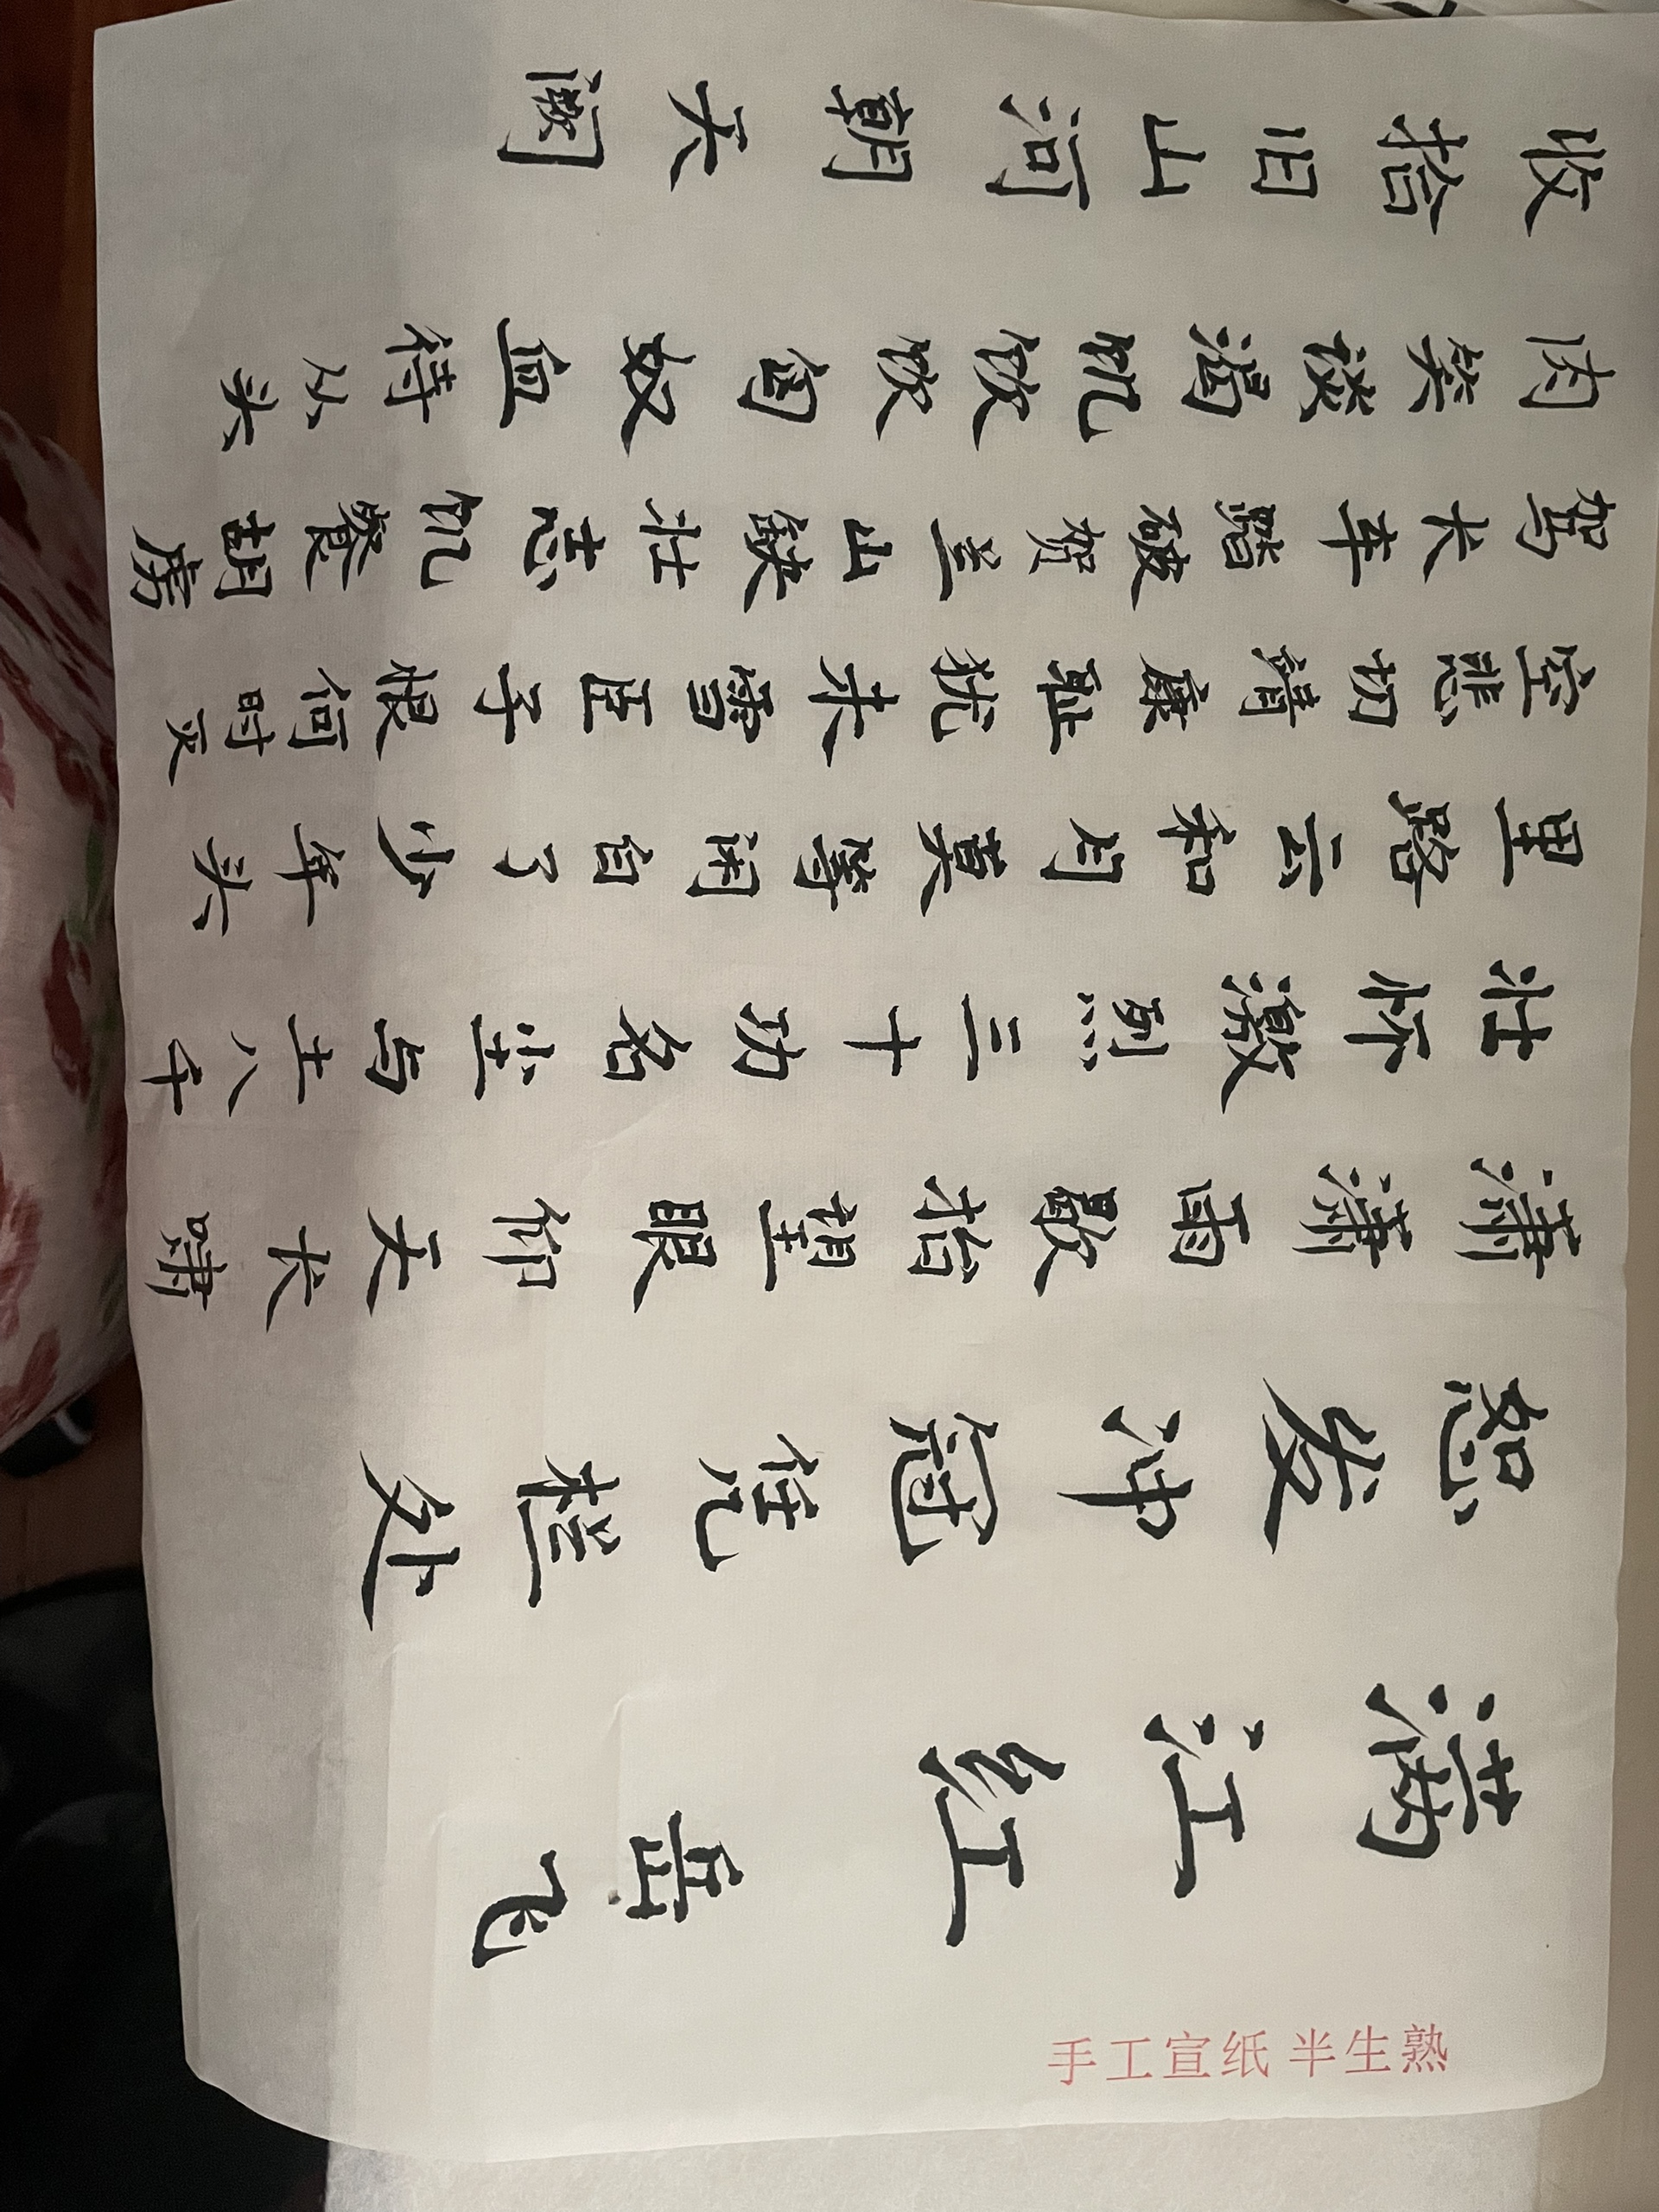 满江红 岳飞
怒发冲冠凭栏处
潇潇雨歇抬望眼仰天长啸
壮怀激烈三十功名尘与土八千
里路云和月莫等闲白了少年头
空悲切靖康耻犹未雪臣子恨何时灭
驾长车踏破贺兰山缺壮志饥餐胡虏
肉笑谈渴饥饮饮匈奴血待从头
收拾旧山河朝天阙
手工宣纸 半生熟